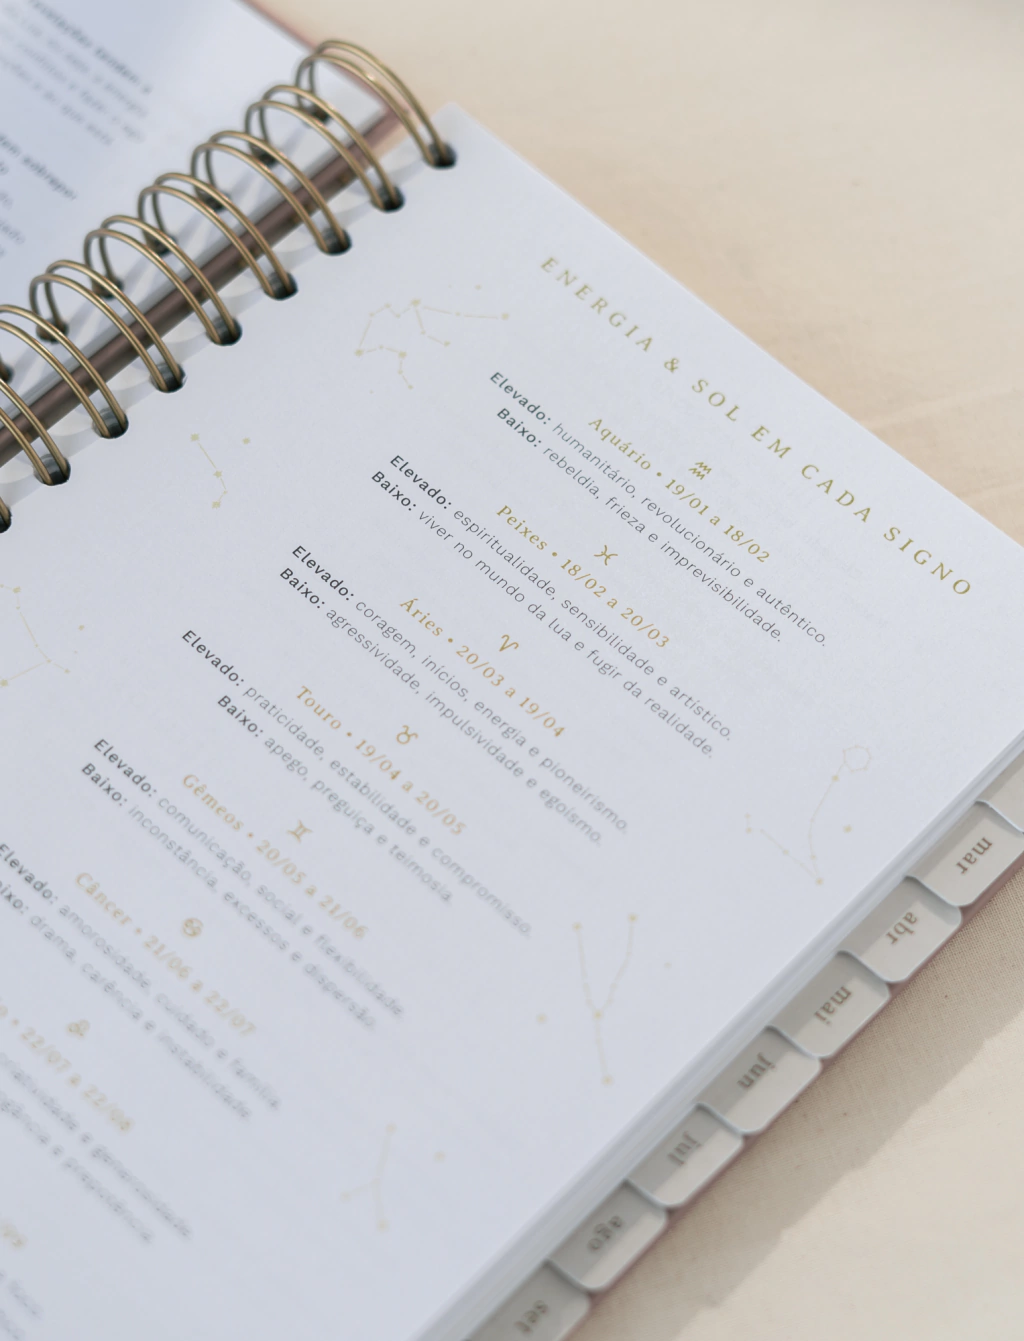 ENERGIA & SOL EM CADA SIGNO
♒
Aquário • 19/01 a 18/02
Elevado: humanitário, revolucionário e autêntico.
Baixo: rebeldia, frieza e imprevisibilidade.
♓
Peixes • 18/02 a 20/03
Elevado: espiritualidade, sensibilidade e artístico.
Baixo: viver no mundo da lua e fugir da realidade.
♈
Áries • 20/03 a 19/04
Elevado: coragem, inícios, energia e pioneirismo.
Baixo: agressividade, impulsividade e egoísmo.
♉
Touro • 19/04 a 20/05
Elevado: praticidade, estabilidade e compromisso.
Baixo: apego, preguiça e teimosia.
♊
Gêmeos • 20/05 a 21/06
Elevado: comunicação, social e flexibilidade.
Baixo: inconstância, excessos e dispersão.
♋
Câncer • 21/06 a 22/07
Elevado: amorosidade, cuidado e família.
Baixo: drama, carência e instabilidade.
♌
• 22/07 a 22/08
e generosidade.
mar
abr
mai
jun
jul
ago
set